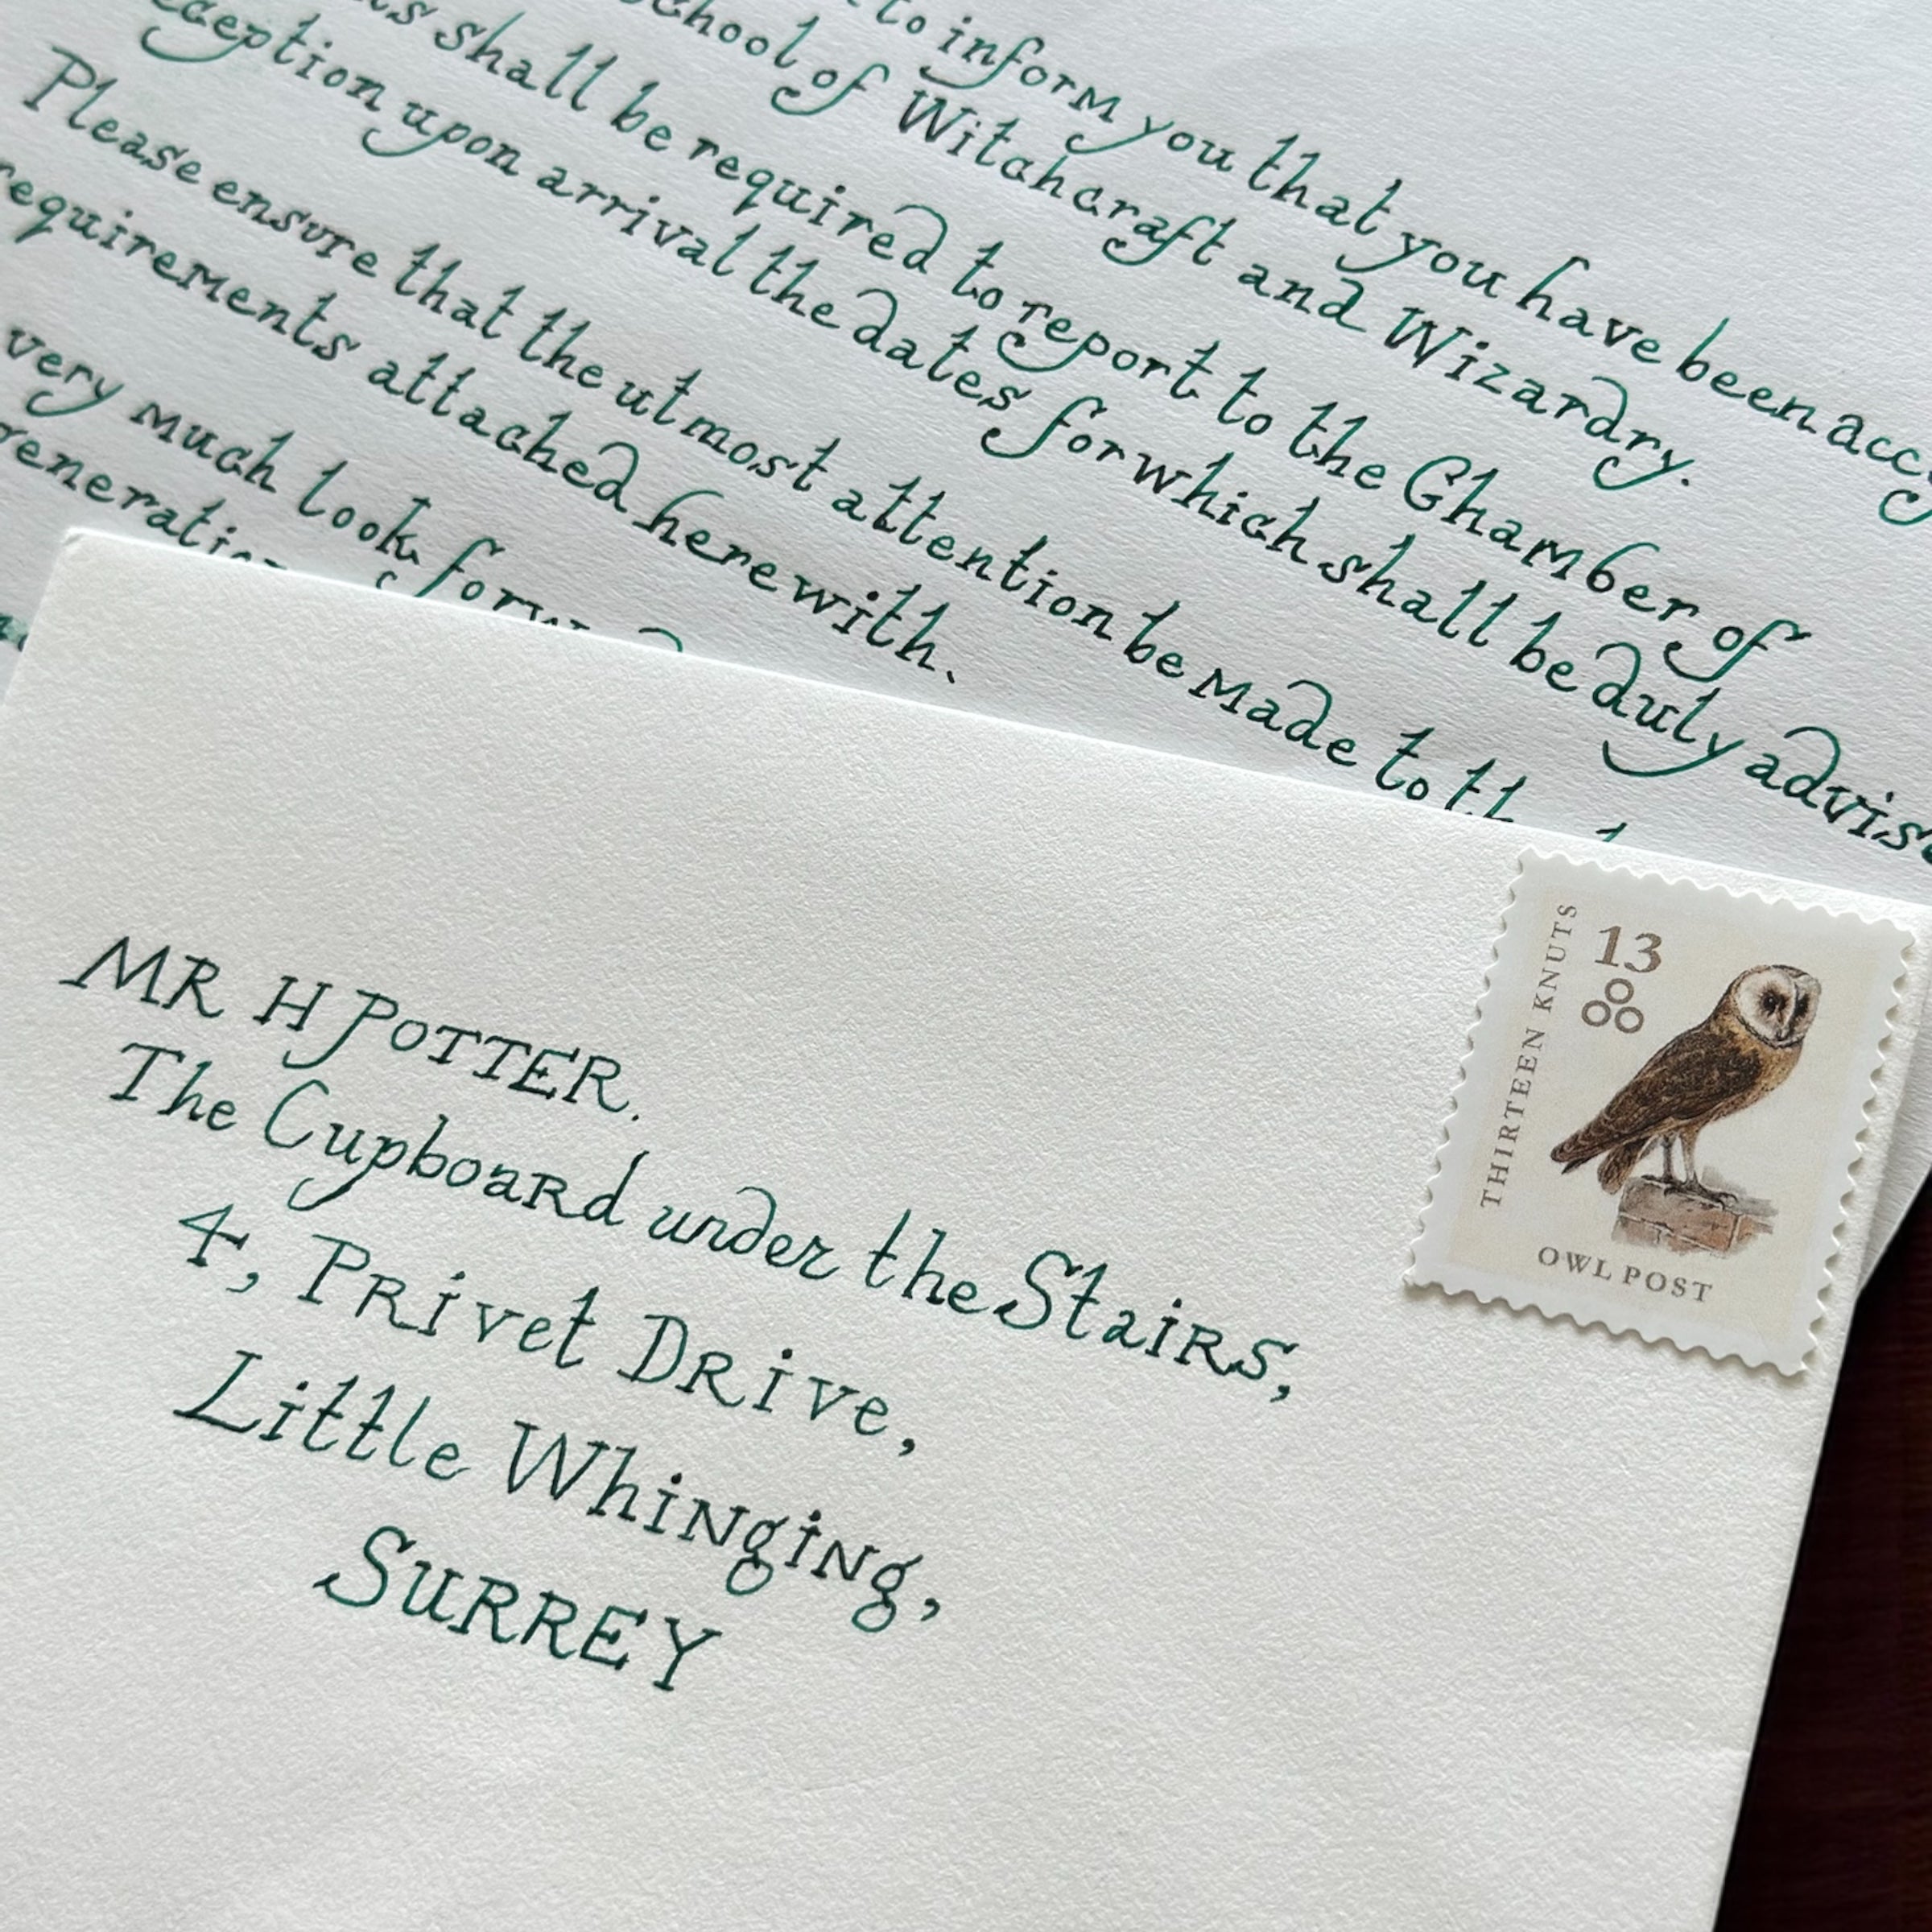 to inform you that you have been
chool of Witchcraft and Wizardry.
shall be required to report to the Chamber of
ception upon arrival the dates for which shall be duly advis
Please ensure that the utmost attention be made to th
requirements attached herewith.
very much look forw
MR H POTTER.
The Cupboard under the Stairs,
4, Privet Drive,
Little Whinging,
SURREY
THIRTEEN KNUTS
13
OWL POST